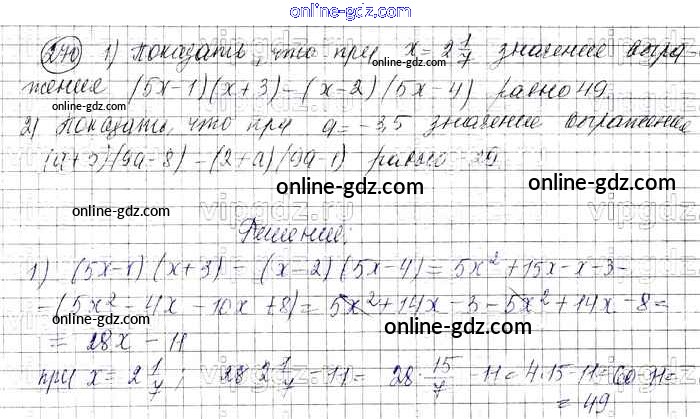 online-gdz.com
270) 1) Показать, что при x = 2 1/7 значение выра
жение (5x-1)(x+3)-(x-2)(5x-4) равно 49.
2) Показать, что при a = -3,5 значение выражение
(a+3)(9a-8)-(2+a)(9a-1) равно -29
online-gdz.com
online-gdz.com
online-gdz.com
online-gdz.com
online-gdz.com
vipgdz.ru
Решение:
1) (5x-1)(x+3) - (x-2)(5x-4) = 5x² + 15x - x - 3 -
-(5x² - 4x - 10x + 8) = 5x² + 14x - 3 - 5x² + 14x - 8 =
online-gdz.com
= 28x - 11
online-gdz.com
при x = 2 1/7; 28·2 1/7 - 11 = 28·15/7 - 11 = 4·15 - 11 = 60 - 11 =
= 49
online-gdz.com
online-gdz.com